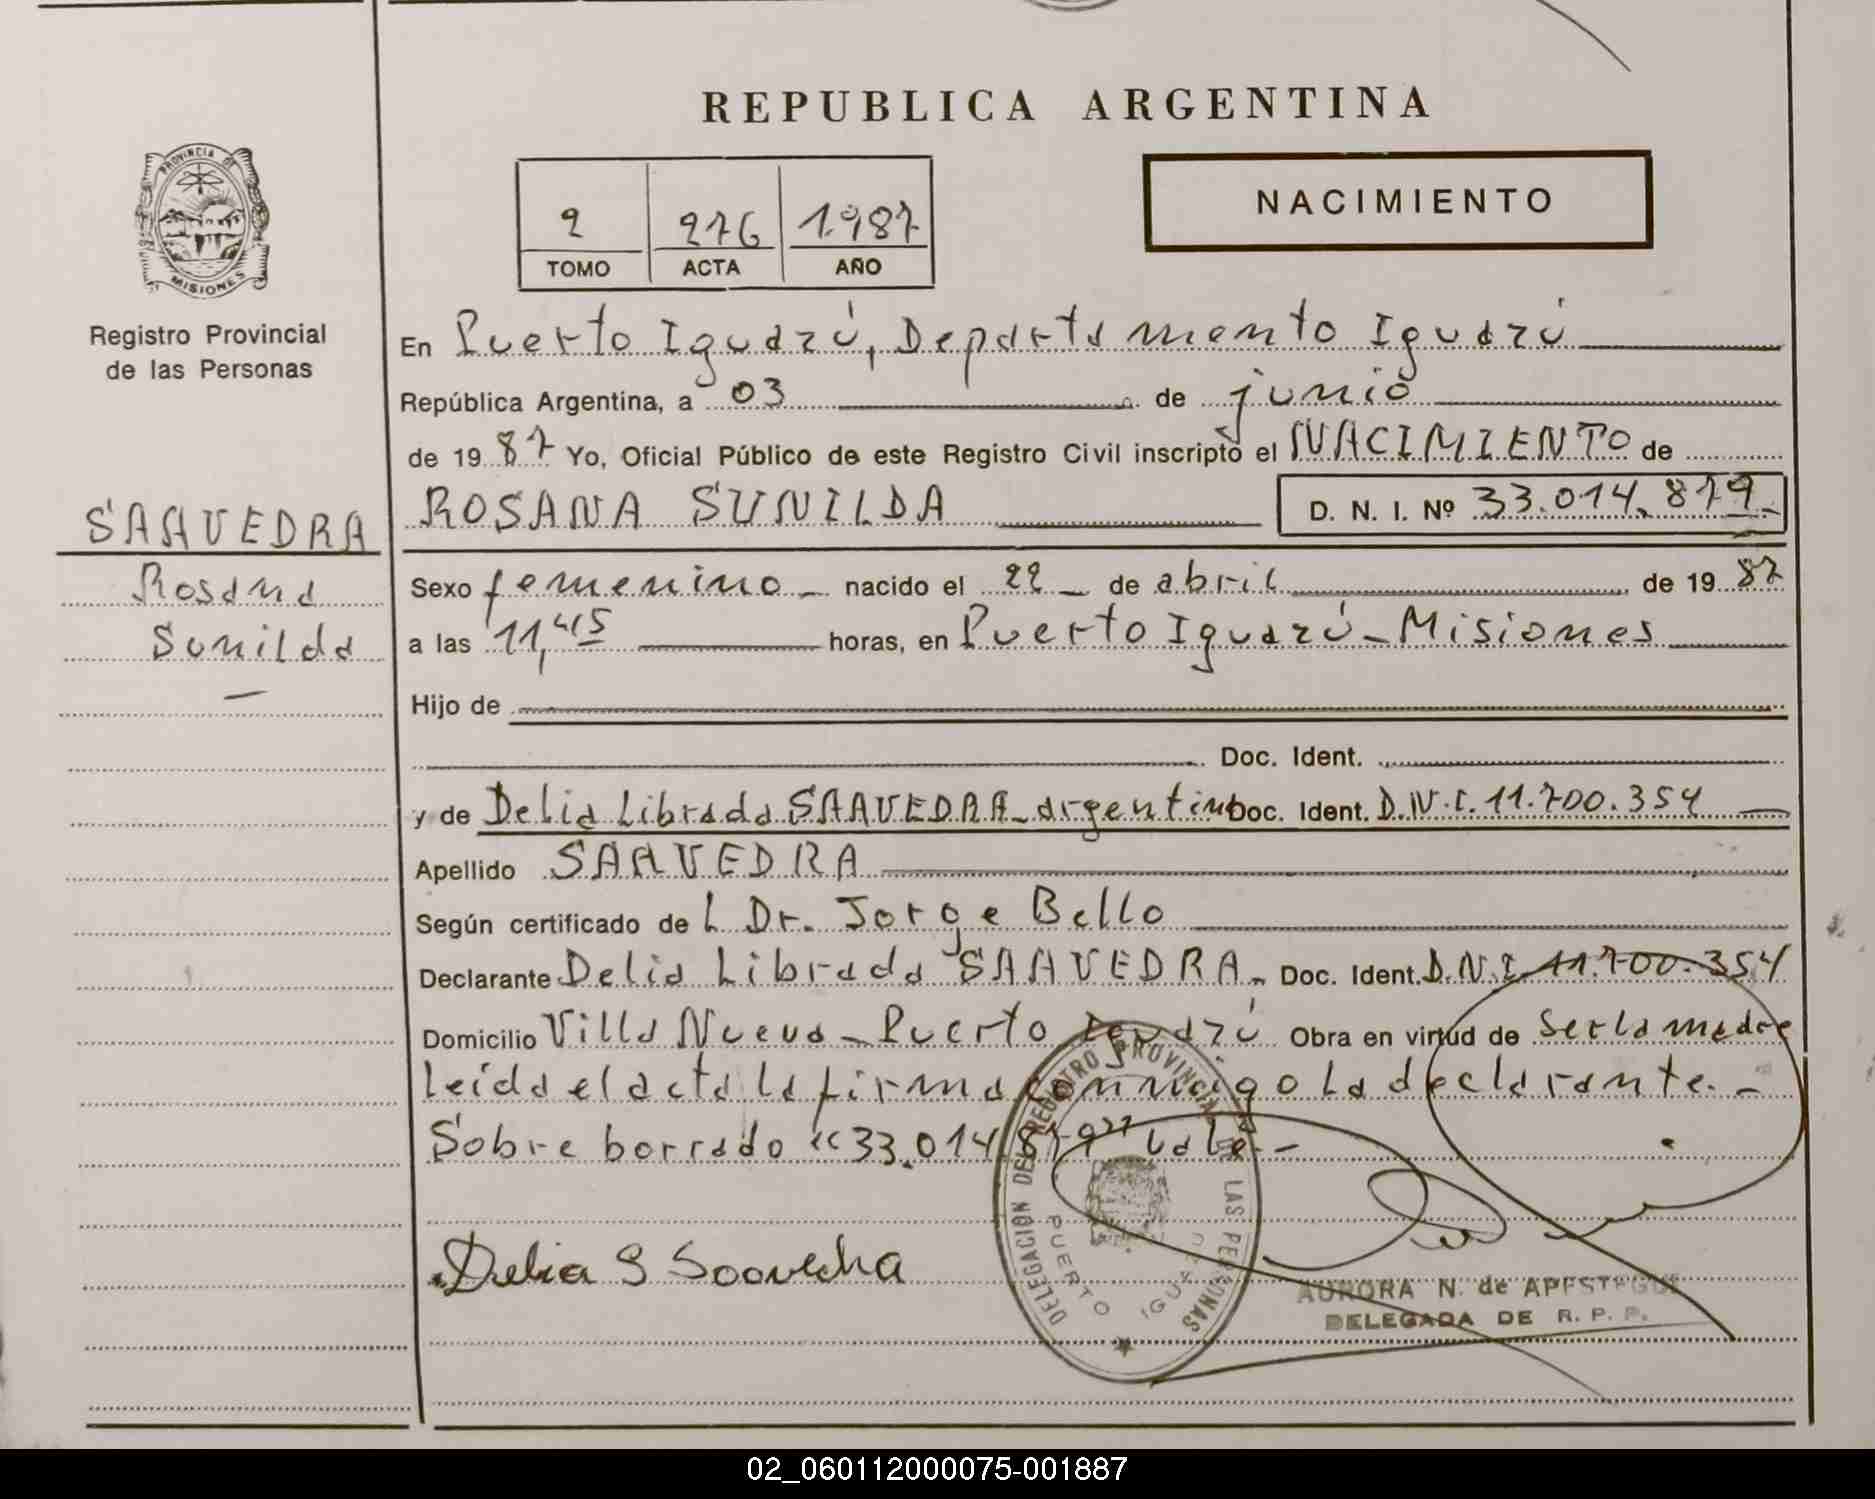 REPUBLICA ARGENTINA
PROVINCIA DE
MISIONES
Registro Provincial
de las Personas
2 276 1.987
TOMO ACTA AÑO
NACIMIENTO
En Puerto Iguazú, Departamento Iguazú
República Argentina, a 03 de junio
de 1987 Yo, Oficial Público de este Registro Civil inscripto el NACIMIENTO de
SAAVEDRA
Rosana
Sunilda
ROSANA SUNILDA D. N. I. Nº 33.014.879
Sexo femenino nacido el 22 de abril de 1987
a las 11,45 horas, en Puerto Iguazú - Misiones
Hijo de
Doc. Ident.
y de Delia Librada SAAVEDRA - argentina Doc. Ident. D.N.I. 11.700.354
Apellido SAAVEDRA
Según certificado de L Dr. Jorge Bello
Declarante Delia Librada SAAVEDRA - Doc. Ident. D.N.I. 11.700.354
Domicilio Villa Nueva - Puerto Iguazú Obra en virtud de Ser la madre
leída el acta la firma conmigo la declarante. -
Sobre borrado "33.014.879" vale. -
Delia S Saavedra
DELEGACION DEL REGISTRO PROVINCIAL DE LAS PERSONAS
PUERTO IGUAZU
AURORA N. de
DELEGADA DE R. P. P.
02_060112000075-001887